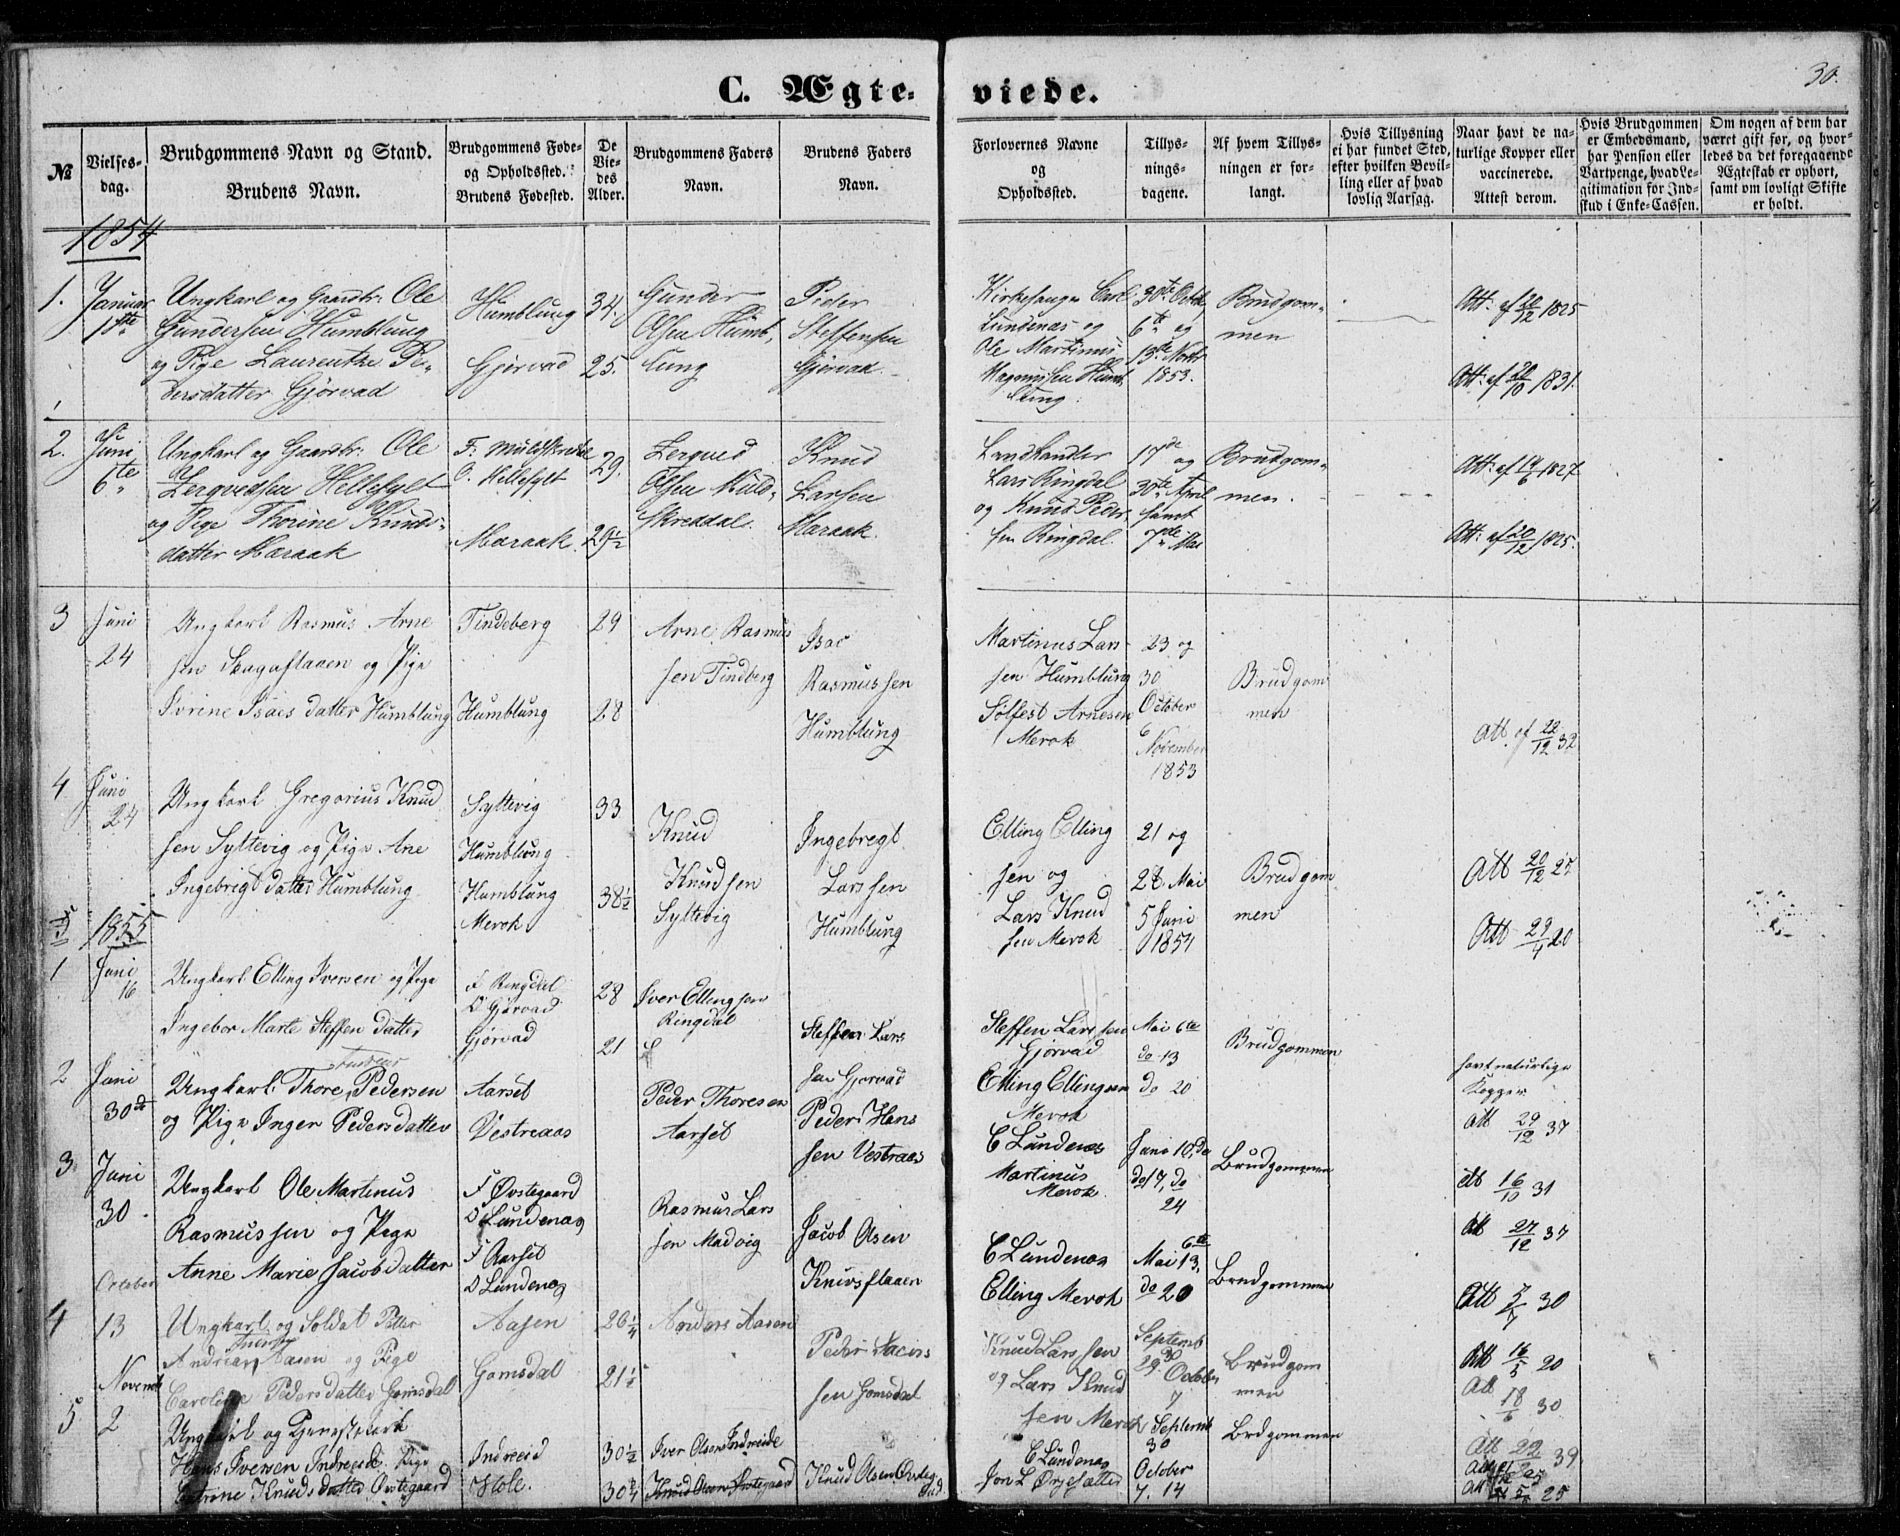 30.
C. Ægte- viede.
№
Vielses-
dag.
Brudgommens Navn og Stand.
Brudens Navn.
Brudgommens Føde-
og Opholdssted.
Brudens Fødested.
De
Vie-
des
Alder.
Brudgommens Faders
Navn.
Brudens Faders
Navn.
Forlovernes Navne
og
Opholdssted.
Tillys-
nings-
dagene.
Af hvem Tillys-
ningen er for-
langt.
Hvis Tillysning
ei har fundet Sted,
efter hvilken Bevil-
ling eller af hvad
lovlig Aarsag.
Naar havt de na-
turlige Kopper eller
vaccinerede.
Attest derom.
Hvis Brudgommen
er Embedsmand,
har Pension eller
Vartpenge, hvad Le-
gitimation for Ind-
skud i Enke-Cassen.
Om nogen af dem har
været gift før, og hvor-
ledes da det foregaaende
Ægteskab er ophørt,
samt om lovligt Skifte
er holdt.
1854
1.
Januar
1ste
Ungkarl og Gaardbr: Ole
Gundersen Humblung
og Pige Laurentke Pe-
dersdatter Gjørvad
Humblung
Gjørvad
34.
25.
Gunder
Olsen Humb,
lung
Peder
Steffensen
Gjørvad.
Kirkesanger Carl
Lundenæs og
Ole Martinus
Magnusen Humb
lung.
30te Octbr,
6te og
13de Novbr
1853.
Brudgom-
men
Att: af 20/12 1825
Att: af 20/10 1831.
2.
Juni
6te
Ungkarl og Gaardbr: Ole
Zerqvedsen Hellesylt
og Pige Thorine Knuds-
datter Maraak
F: Muldskredal
O. Hellesylt
Maraak.
29.
29 1/2
Zerqved
Olsen Muld-
skreddal.
Knud
Larsen
Maraak.
Landhandler
Lars Ringdal
og Knud Peder
sen Ringdal.
17de og
30te April
samt
7de Mai
Brudgom-
men.
Att: af 19/6 1827
Att: af 20/12 1825.
3
Juni
24
Ungkarl Rasmus Arne
sen Skagaflaaen og Pige
Ivrine Isacs datter Humblung
Tindeberg
Humblung
29
28
Arne Rasmus
sen Tindberg
Isac
Rasmus sen
Humblung
Martinus Lars
sen Humblung
Sølfest Arnesen
Merok
23 og
30
October
6
November
1853
Brudgom
men
Att. af 22/12 32
4
Juni
24
Ungkarl Gregorius Knud
sen Syltevig og Pige Ane
Ingebrigt datter Humblung
Syltevig
Humblung
Humblung
Merok
33
38 1/2
Knud
Knudsen
Syltevig
Ingebregt
Larssen
Humblung
Elling Elling
sen og
Lars Knud
sen Merok
21 og
28 Mai
5 Juni
1854
Brudgom
men
Att 20/12 27
Att 29/4 20
5
1855
1
Juni
16
Ungkarl Elling Iversen og Pige
Ingebor Marte Steffen datter
F Ringdal
O Gjørvad
Gjørvad
28
21
Iver Elling sen
Ringdal
Steffen Lars
sen Gjørvad
Steffen Lars sen
Gjørvad
Elling Ellingsen
Merok
Mai 6te
do 13
do 20
Brudgommen
havt naturlige
Kopper
Att 29/12 37
2
Juni
30te
Ungkarl Thore Pedersen
og Pige Inger Pedersdatter
Aarset
Vestreaas
Peder Thoresen
Aarset
Peder Hans
sen Vestraas
C Lundenæs
Martinus
Merok
Juni 10, do
do 17, do
24
Brudgommen
Att 16/10 31
Att 27/12 37
3
Juni
30
Ungkarl Ole Martinus
Rasmussen og Pige
Anne Marie Jacobdatter
F Øvstegaard
O Lundenæs
F Aarset
O Lundenæs
Rasmus Lars
sen Madvig
Jacob Olsen
Knivsflaaen
C Lundenæs
Elling Merok
6te
Mai 13,
do 20
Brudgommen
Att 7/7 30
4
October
13
Ungkarl og Soldat Peter
Andreas Aasen og Pige
Caroline Pedersdatter Gomsdal
Aasen
Gomsdal
26 1/4
21 1/2
Anders Aasen
Peder Sacris
sen Gomsdal
Knud Lars sen
og Lars Knud
sen Merok
Septemb
29 30
October
7
Brudgom
men
Att 16/5 20
Att 18/6 30
5
Novemb
2
Ungkarl og Tjenestekarl
Hans Iversen Indreeid Pige
Catrine Knuds datter Øvstegaard
Indreeid
Hole.
30 1/2
30 3/4
Iver Olsen Indreide
Knud Olsen Øvstegaard
Knud Olsen Øvsteg
C Lundenæs
Jon L Ørjesæter
Septemb
30
October
7. 14
Brdgommen
Att 22 39
Att 25